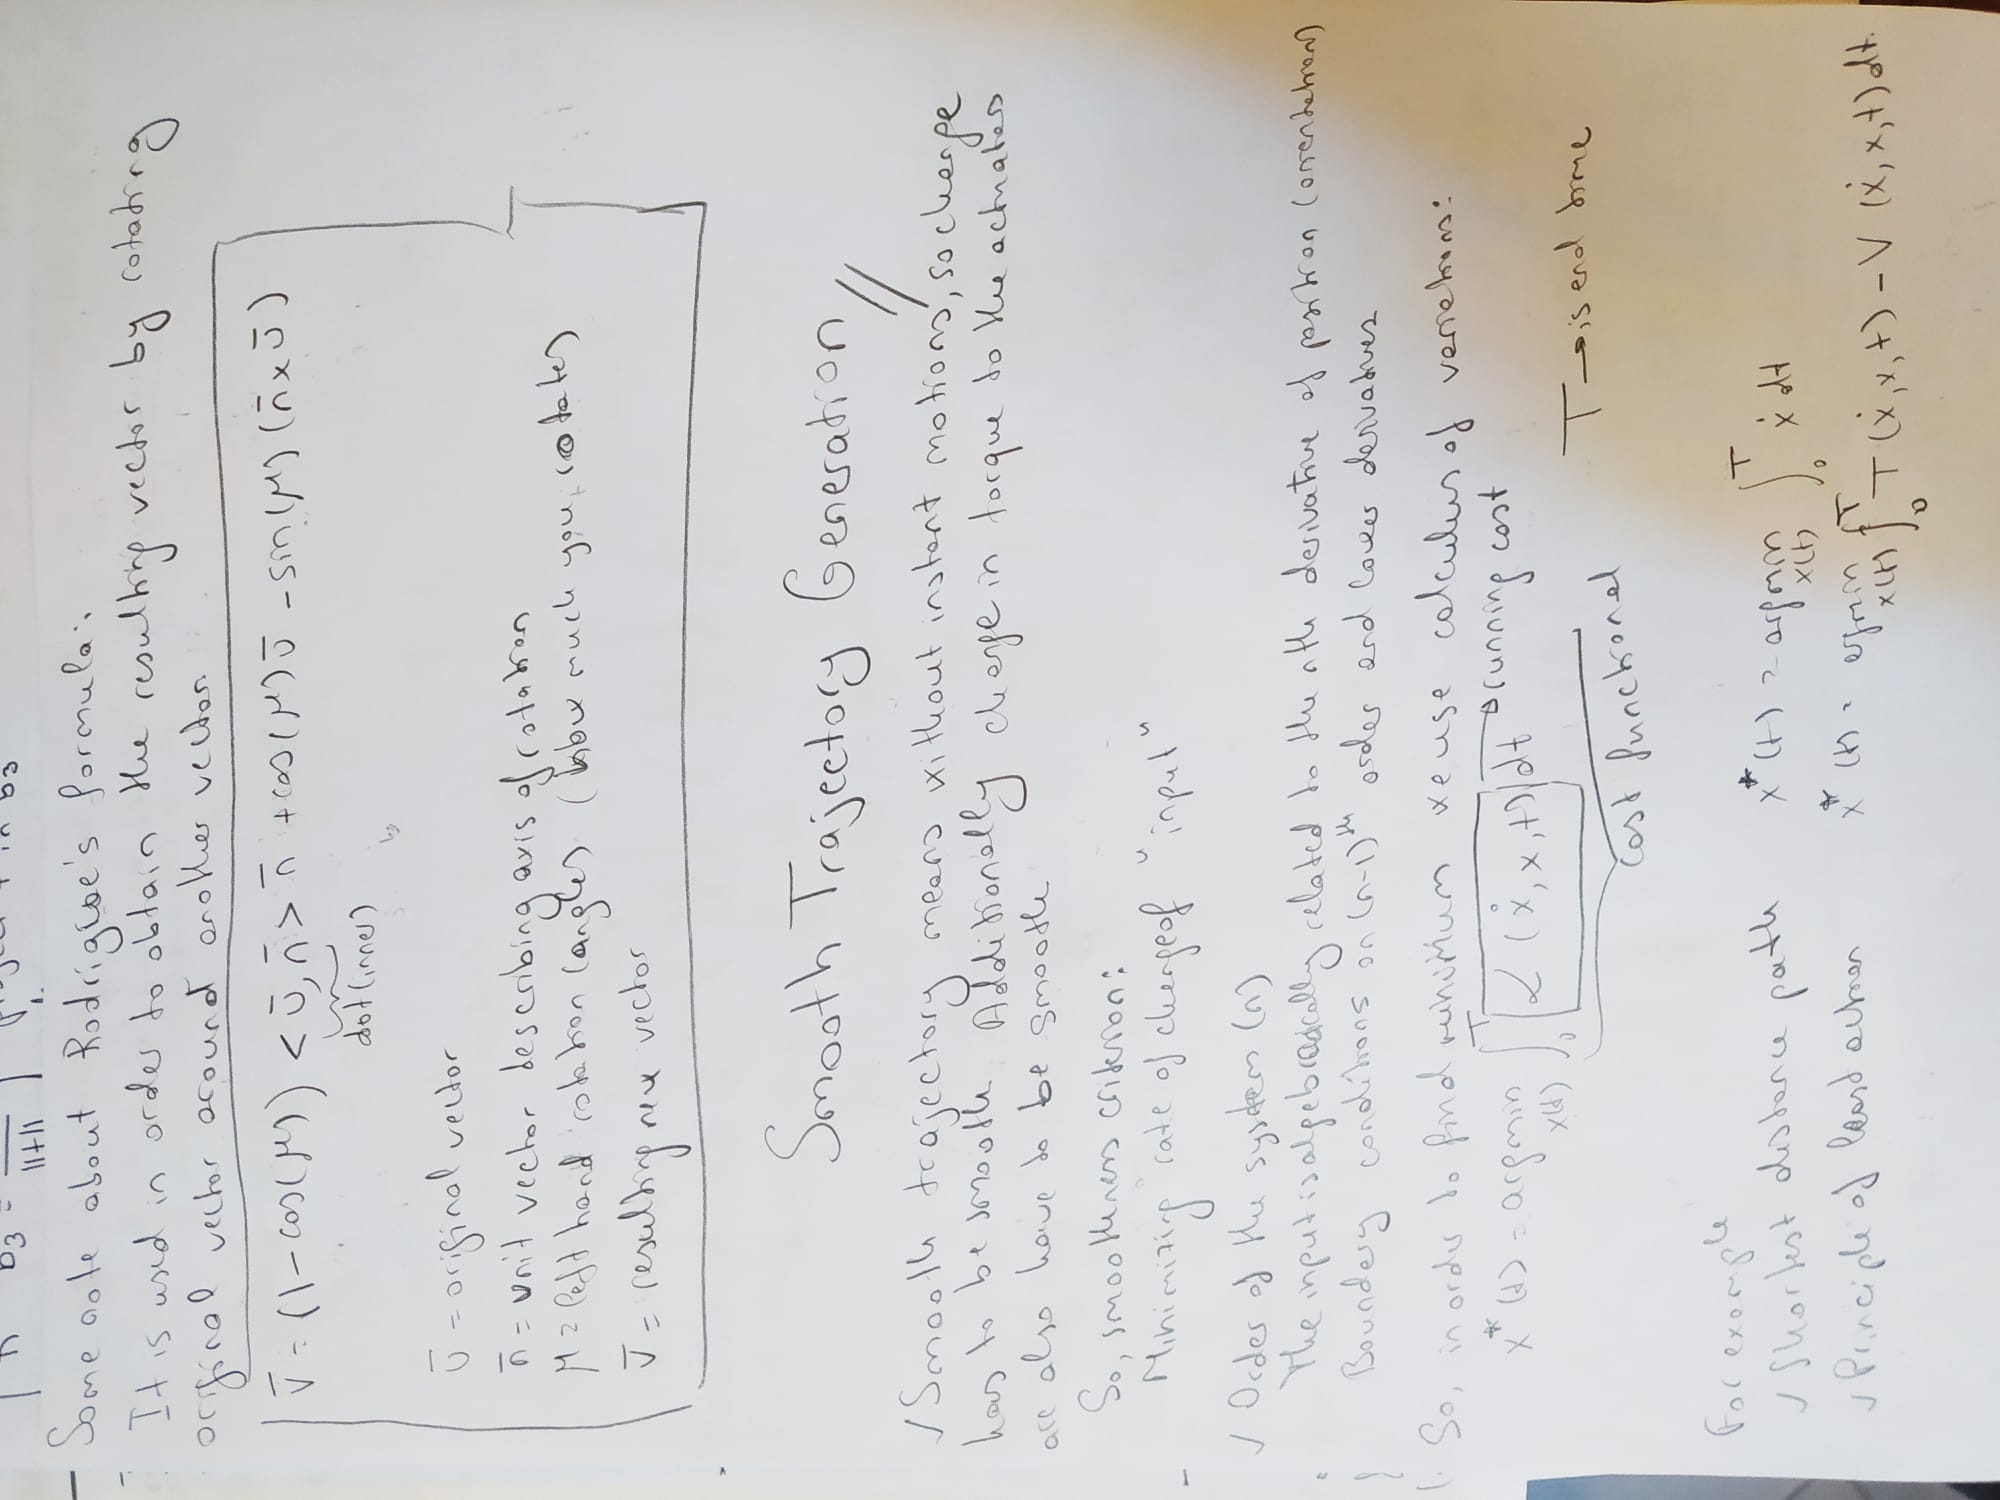 b₃ = ‾‾ ||t||
Some note about Rodrigue's formula:
It is used in order to obtain the resulting vector by rotating
original vector around another vector
v̄ = (1-cos(μ)) <ū, n̄> n̄ + cos(μ)ū - sin(μ)(n̄ x ū)
dot(inner)
ū = original vector
n̄ = unit vector describing axis of rotation
μ = left hand rotation (angles) (how much you rotates)
v̄ = resulting new vector
Smooth Trajectory Generation //
✓ Smooth trajectory means without instant motions, so change
has to be smooth. Additionally change in torque to the actuators
are also have to be smooth
So, smoothness criterion:
Minimizing rate of change of "input"
✓ Order of the system (n)
The input is algebraically related to the nth derivative of position (orientation)
Boundery conditions on (n-1)th order and lower derivatives
So, in order to find minimum we use calculus of variations:
x*(t) = argmin x(t) ∫₀ᵀ L(ẋ, x, t) dt → running cost
T → is end time
cost functional
For example
✓ Shortest distance path x*(t) = argmin x(t) ∫₀ᵀ ẋ dt
✓ Principle of least action x*(t) = argmin x(t) ∫₀ᵀ T(ẋ, x, t) - V(ẋ, x, t) dt